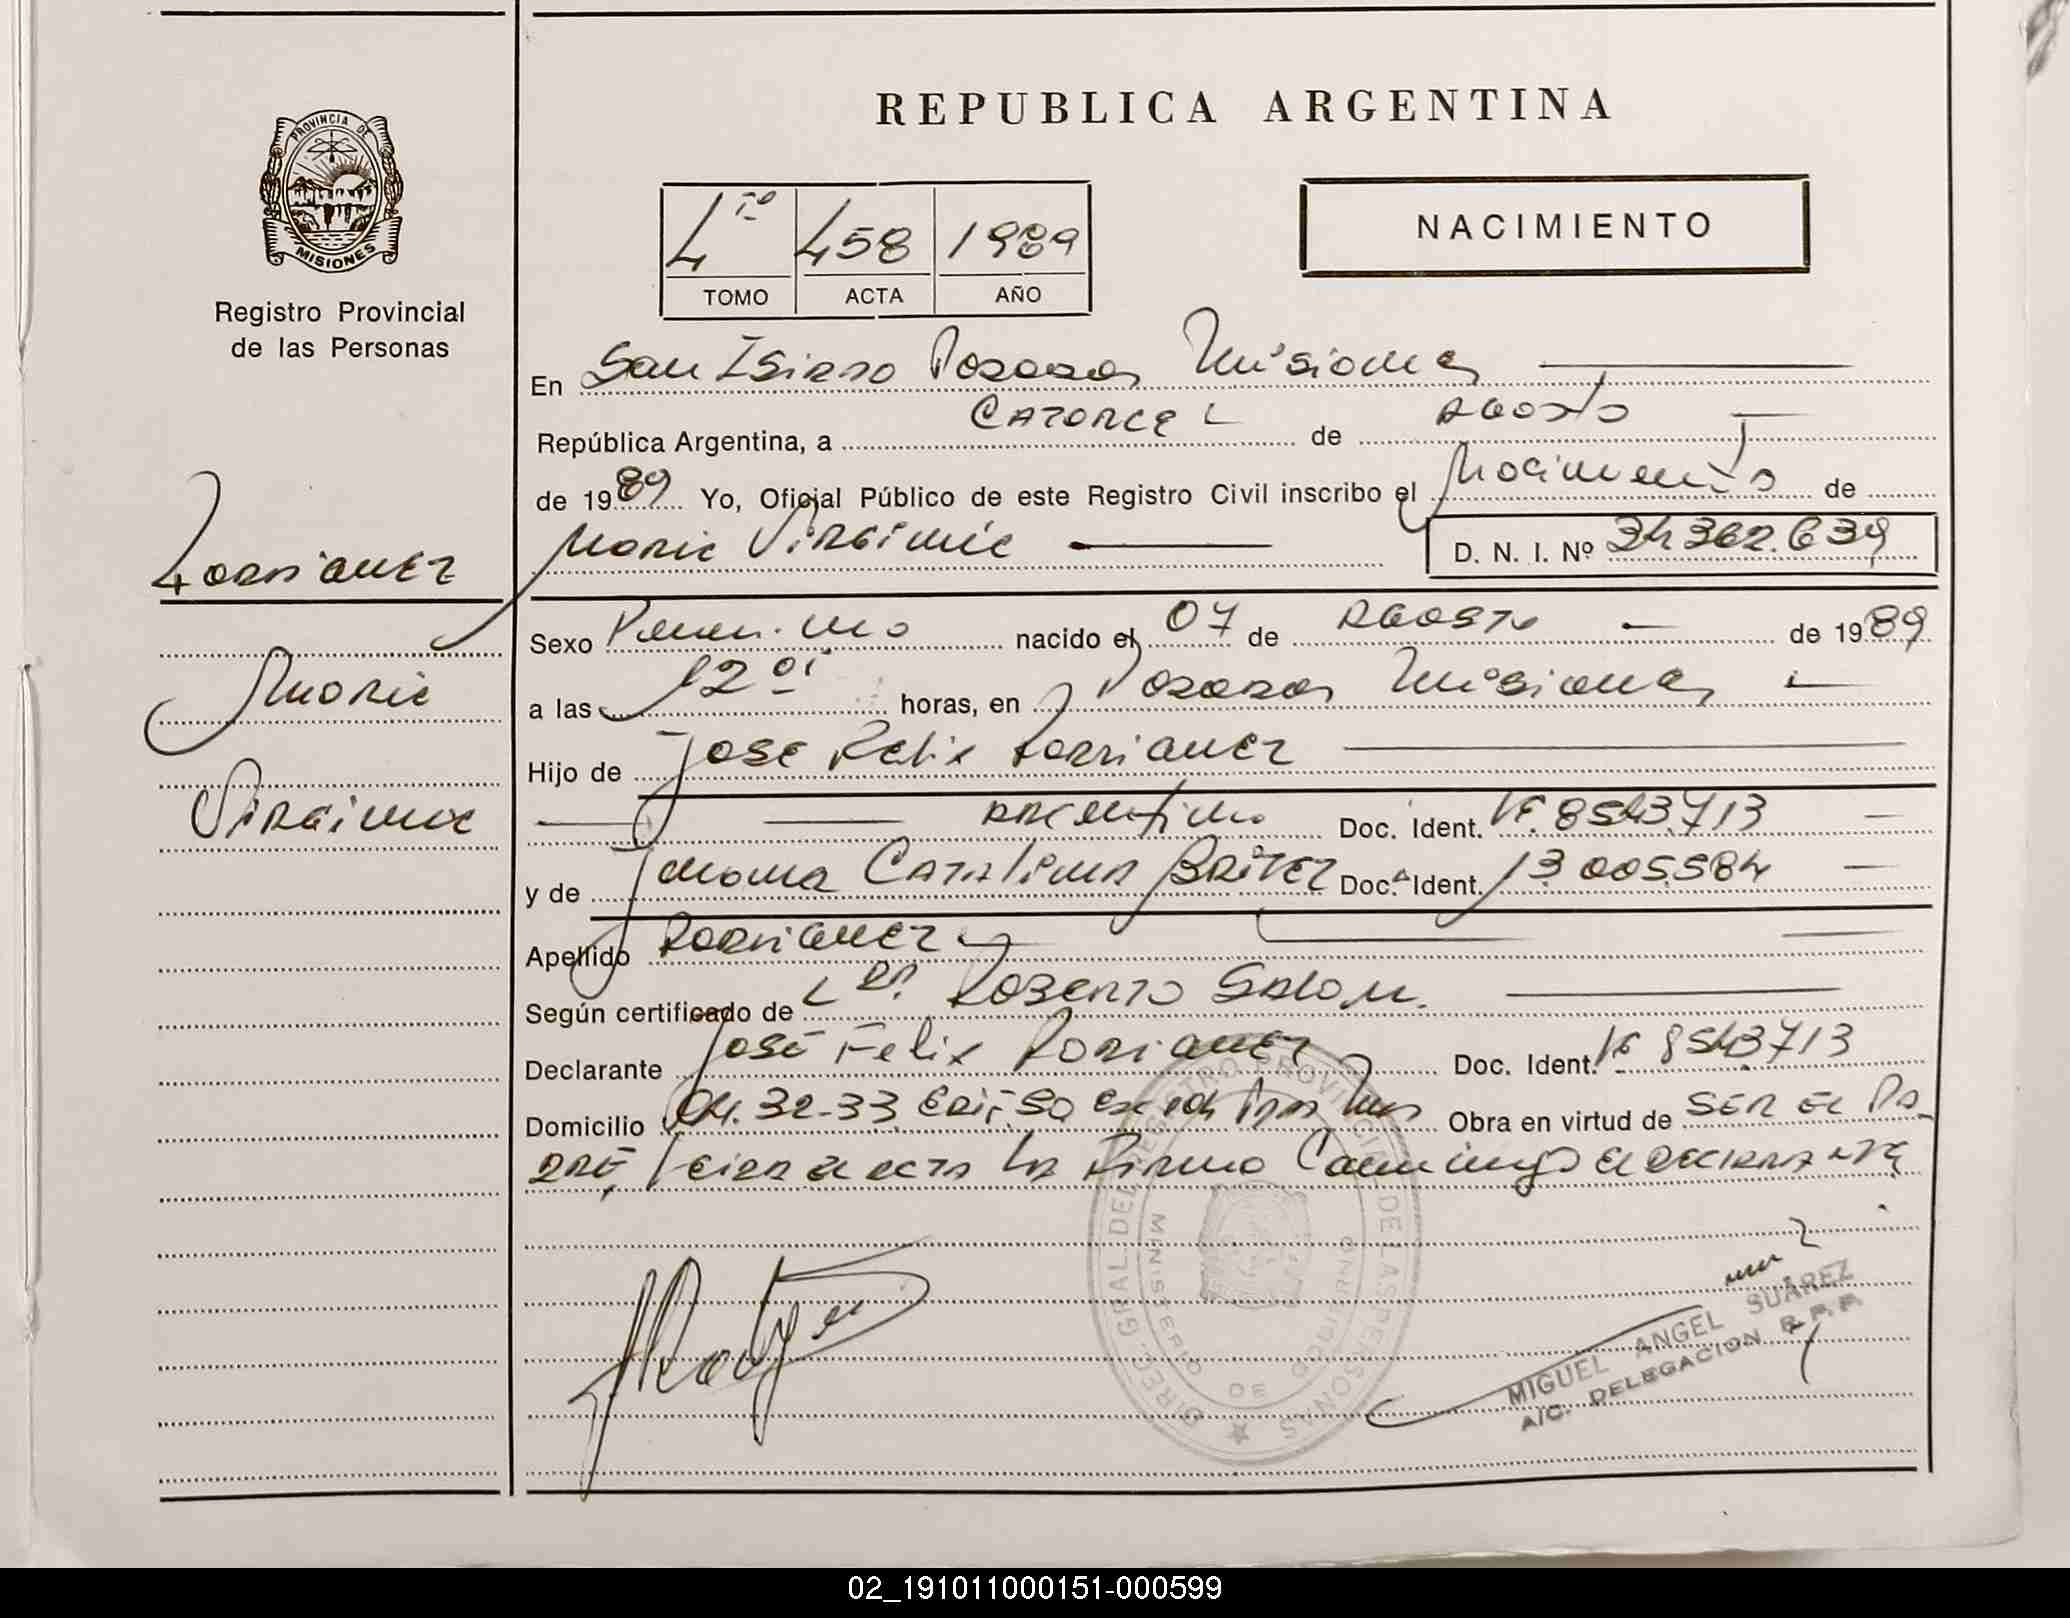 PROVINCIA DE
MISIONES
Registro Provincial
de las Personas
REPUBLICA ARGENTINA
NACIMIENTO
4to 458 1989
TOMO ACTA AÑO
En San Isidro Posadas Misiones
República Argentina, a CATORCE de AGOSTO
de 1989 Yo, Oficial Público de este Registro Civil inscribo el Nacimiento de
Maria Virginia D. N. I. Nº 34362.639
Rodriguez
Maria
Virginia
Sexo Femenino nacido el 07 de AGOSTO de 1989
a las 12 01 horas, en Posadas Misiones
Hijo de Jose Felix Rodriguez
ARGENtino Doc. Ident. 8543713
y de Ramona CATALINA BRITEZ Doc. Ident. 13005584
Apellido Rodriguez
Según certificado de DR. ROBERTO
Declarante José Felix Rodriguez Doc. Ident. 8543713
Domicilio 32-33 Obra en virtud de SER EL PA-
DRE, Leida el acta la Firma Conmigo el declarante
DIREC. GRAL. DEL REGISTRO PROVINCIAL DE LAS PERSONAS
MINISTERIO DE GOBIERNO
MIGUEL ANGEL SUAREZ
A/C. DELEGACION R.P.P.
02_191011000151-000599